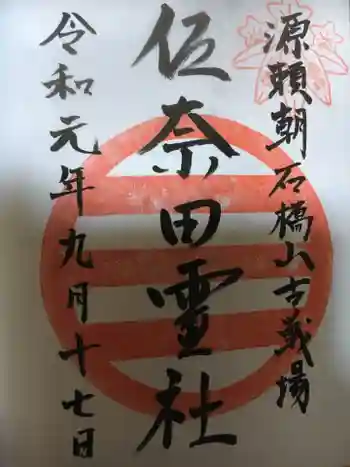 源頼朝石橋山古戦場
佐奈田霊社
令和元年九月十七日